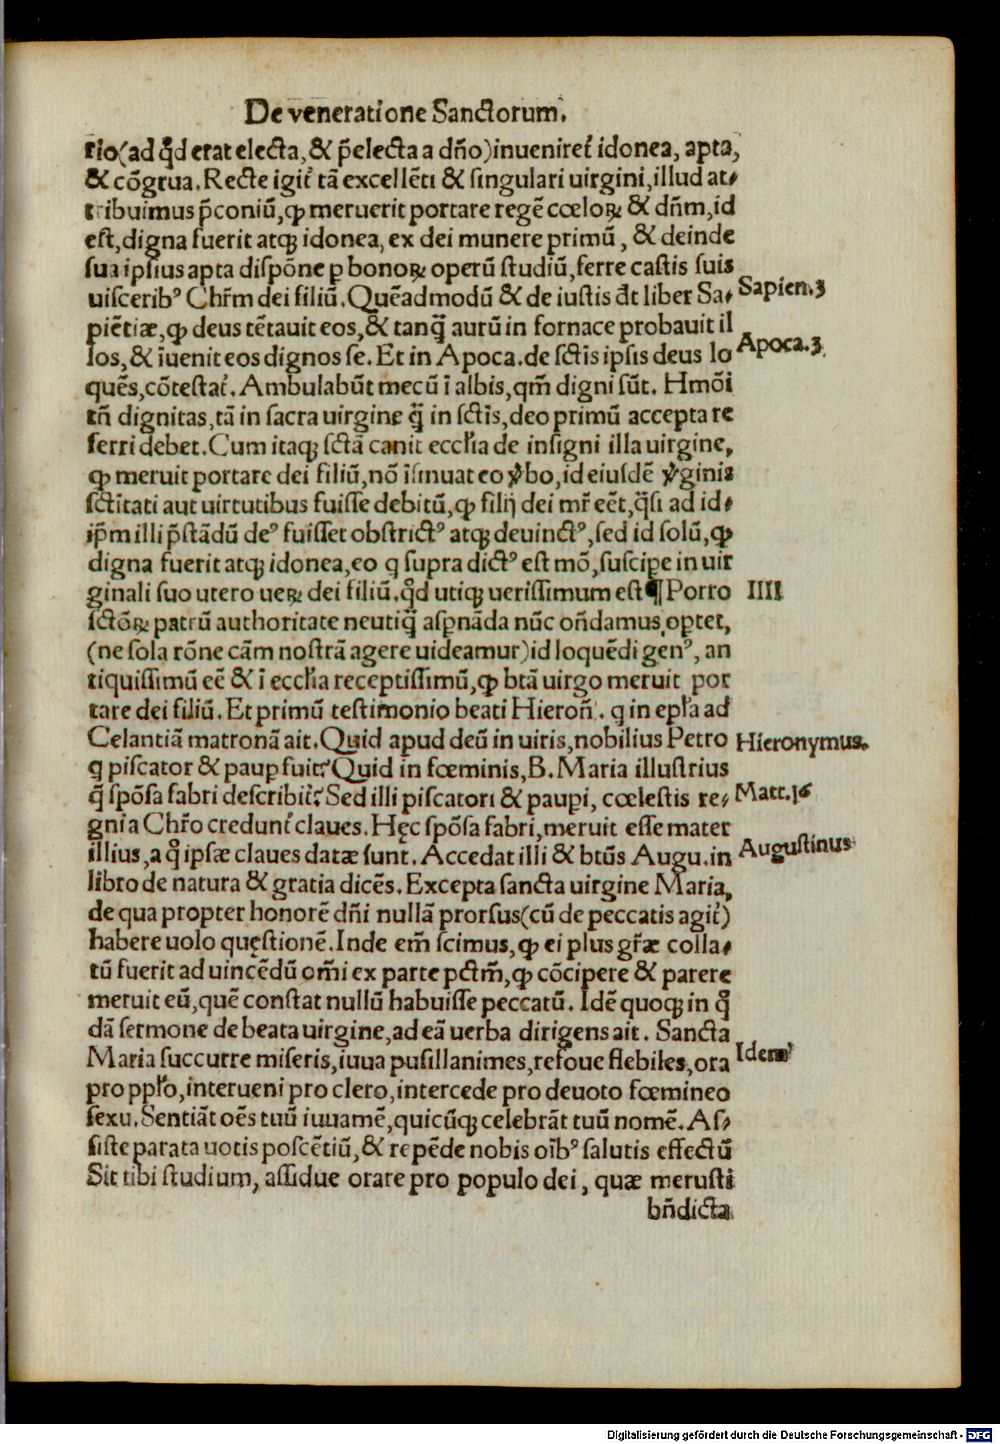 De veneratione Sanctorum.
rio(ad qd̃ erat electa, & p̃electa a dño)inueniret̃ idonea, apta,
& cõgrua. Recte igit̃ tã excellẽti & singulari uirgini, illud at⸗
tribuimus p̃coniũ, ꝙ meruerit portare regẽ cœloꝝ & dñm, id
est, digna fuerit atqꝫ idonea, ex dei munere primũ, & deinde
sua ipsius apta dispõne ꝑ bonoꝝ operũ studiũ, ferre castis suis
uisceribꝰ Chr̃m dei filiũ. Quẽadmodũ & de iustis dt̃ liber Sa⸗
Sapien.3
piẽtiæ, ꝙ deus tẽtauit eos, & tanq̃ aurũ in fornace probauit il
los, & ĩuenit eos dignos se. Et in Apoca. de sctĩs ipsis deus lo
Apoca.3.
quẽs, cõtestat̃. Ambulabũt mecũ ĩ albis, qm̃ digni sũt. Hmõi
tñ dignitas, tã in sacra uirgine q̃ in sctĩs, deo primũ accepta re
ferri debet. Cum itaqꝫ sctã canit eccl̃ia de insigni illa uirgine,
ꝙ meruit portare dei filiũ, nõ ĩsinuat eo ṽbo, id eiusdẽ ṽginis
sctĩtati aut uirtutibus fuisse debitũ, ꝙ filij dei mr̃ eẽt, q̃si ad id⸗
ip̃m illi p̃stãdũ deꝰ fuisset obstrictꝰ atqꝫ deuinctꝰ, sed id solũ, ꝙ
digna fuerit atqꝫ idonea, eo q supra dictꝰ est mõ, suscipe in uir
ginali suo utero ueꝝ dei filiũ. qd̃ utiqꝫ uerissimum est ¶ Porro
IIII
sctõꝝ patrũ authoritate neutiq̃ aspnãda nũc oñdamus optet,
(ne sola rõne cãm nostrã agere uideamur)id loquẽdi genꝰ, an
tiquissimũ eẽ & ĩ eccl̃ia receptissimũ, ꝙ btã uirgo meruit por
tare dei filiũ. Et primũ testimonio beati Hieroñ. q in epl̃a ad
Celantiã matronã ait. Quid apud deũ in uiris, nobilius Petro
Hieronymus.
q piscator & paup fuit? Quid in fœminis, B. Maria illustrius
q̃ spõsa fabri describit̃? Sed illi piscatori & paupi, cœlestis re⸗
Matt.16
gnia Chr̃o credunt̃ claues. Hęc spõsa fabri, meruit esse mater
illius, a q̃ ipsæ claues datæ sunt. Accedat illi & btũs Augu. in
Augustinus
libro de natura & gratia dicẽs. Excepta sancta uirgine Maria,
de qua propter honorẽ dñi nullã prorsus(cũ de peccatis agit̃)
habere uolo quęstionẽ. Inde em̃ scimus, ꝙ ei plus gr̃æ colla⸗
tũ fuerit ad uincẽdũ om̃i ex parte pctm̃, ꝙ cõcipere & parere
meruit eũ, quẽ constat nullũ habuisse peccatũ. Idẽ quoqꝫ in q̃
dã sermone de beata uirgine, ad eã uerba dirigens ait. Sancta
Maria succurre miseris, iuua pusillanimes, refoue flebiles, ora
Idem
pro ppl̃o, interueni pro clero, intercede pro deuoto fœmineo
sexu. Sentiãt oẽs tuũ iuuamẽ, quicũqꝫ celebrãt tuũ nomẽ. As⸗
siste parata uotis poscẽtiũ, & repẽde nobis oĩbꝰ salutis effectũ
Sit tibi studium, assidue orare pro populo dei, quæ merusti
bñdicta
Digitalisierung gefördert durch die Deutsche Forschungsgemeinschaft - DFG